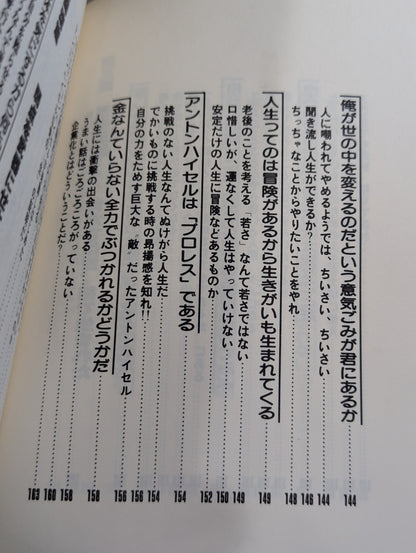 俺が世の中を変えるのだという意気ごみが君にあるか 144
人に嘲われてやめるようでは、ちいさい、ちいさい 144
聞き流し人生ができるか? 146
ちっちゃなことからやりたいことをやれ 148
人生ってのは冒険があるから生きがいも生まれてくる 149
老後のことを考える〝若さ〟なんて若さではない 149
口惜しいが、運なくして人生はやっていけない 150
安定だけの人生に冒険などあるものか 152
アントンハイセルは「プロレス」である 154
挑戦のない人生なんてぬけがら人生だ 154
でかいものに挑戦する時の昂揚感を知れ!! 156
自分の力をためす巨大な〝敵〟だったアントンハイセル 156
金なんていらない全力でぶつかれるかどうかだ 158
人生には衝撃の出会いがある 158
うまい話はごろごろころがっていない 160
企業化とはどういうことだ? 163